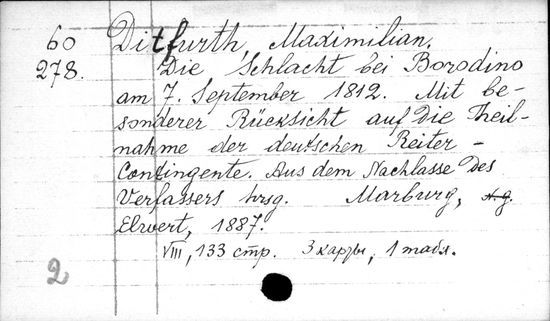 60 Ditfurth, Maximilian.
278. Die Schlacht bei Borodino
am 7. September 1812. Mit be-
sonderer Rücksicht auf die Theil-
nahme der deutschen Reiter -
Contingente. Aus dem Nachlasse des
Verfassers hrsg. Marburg,
Elwert, 1887.
VIII, 133 стр. 3 карты, 1 табл.
2